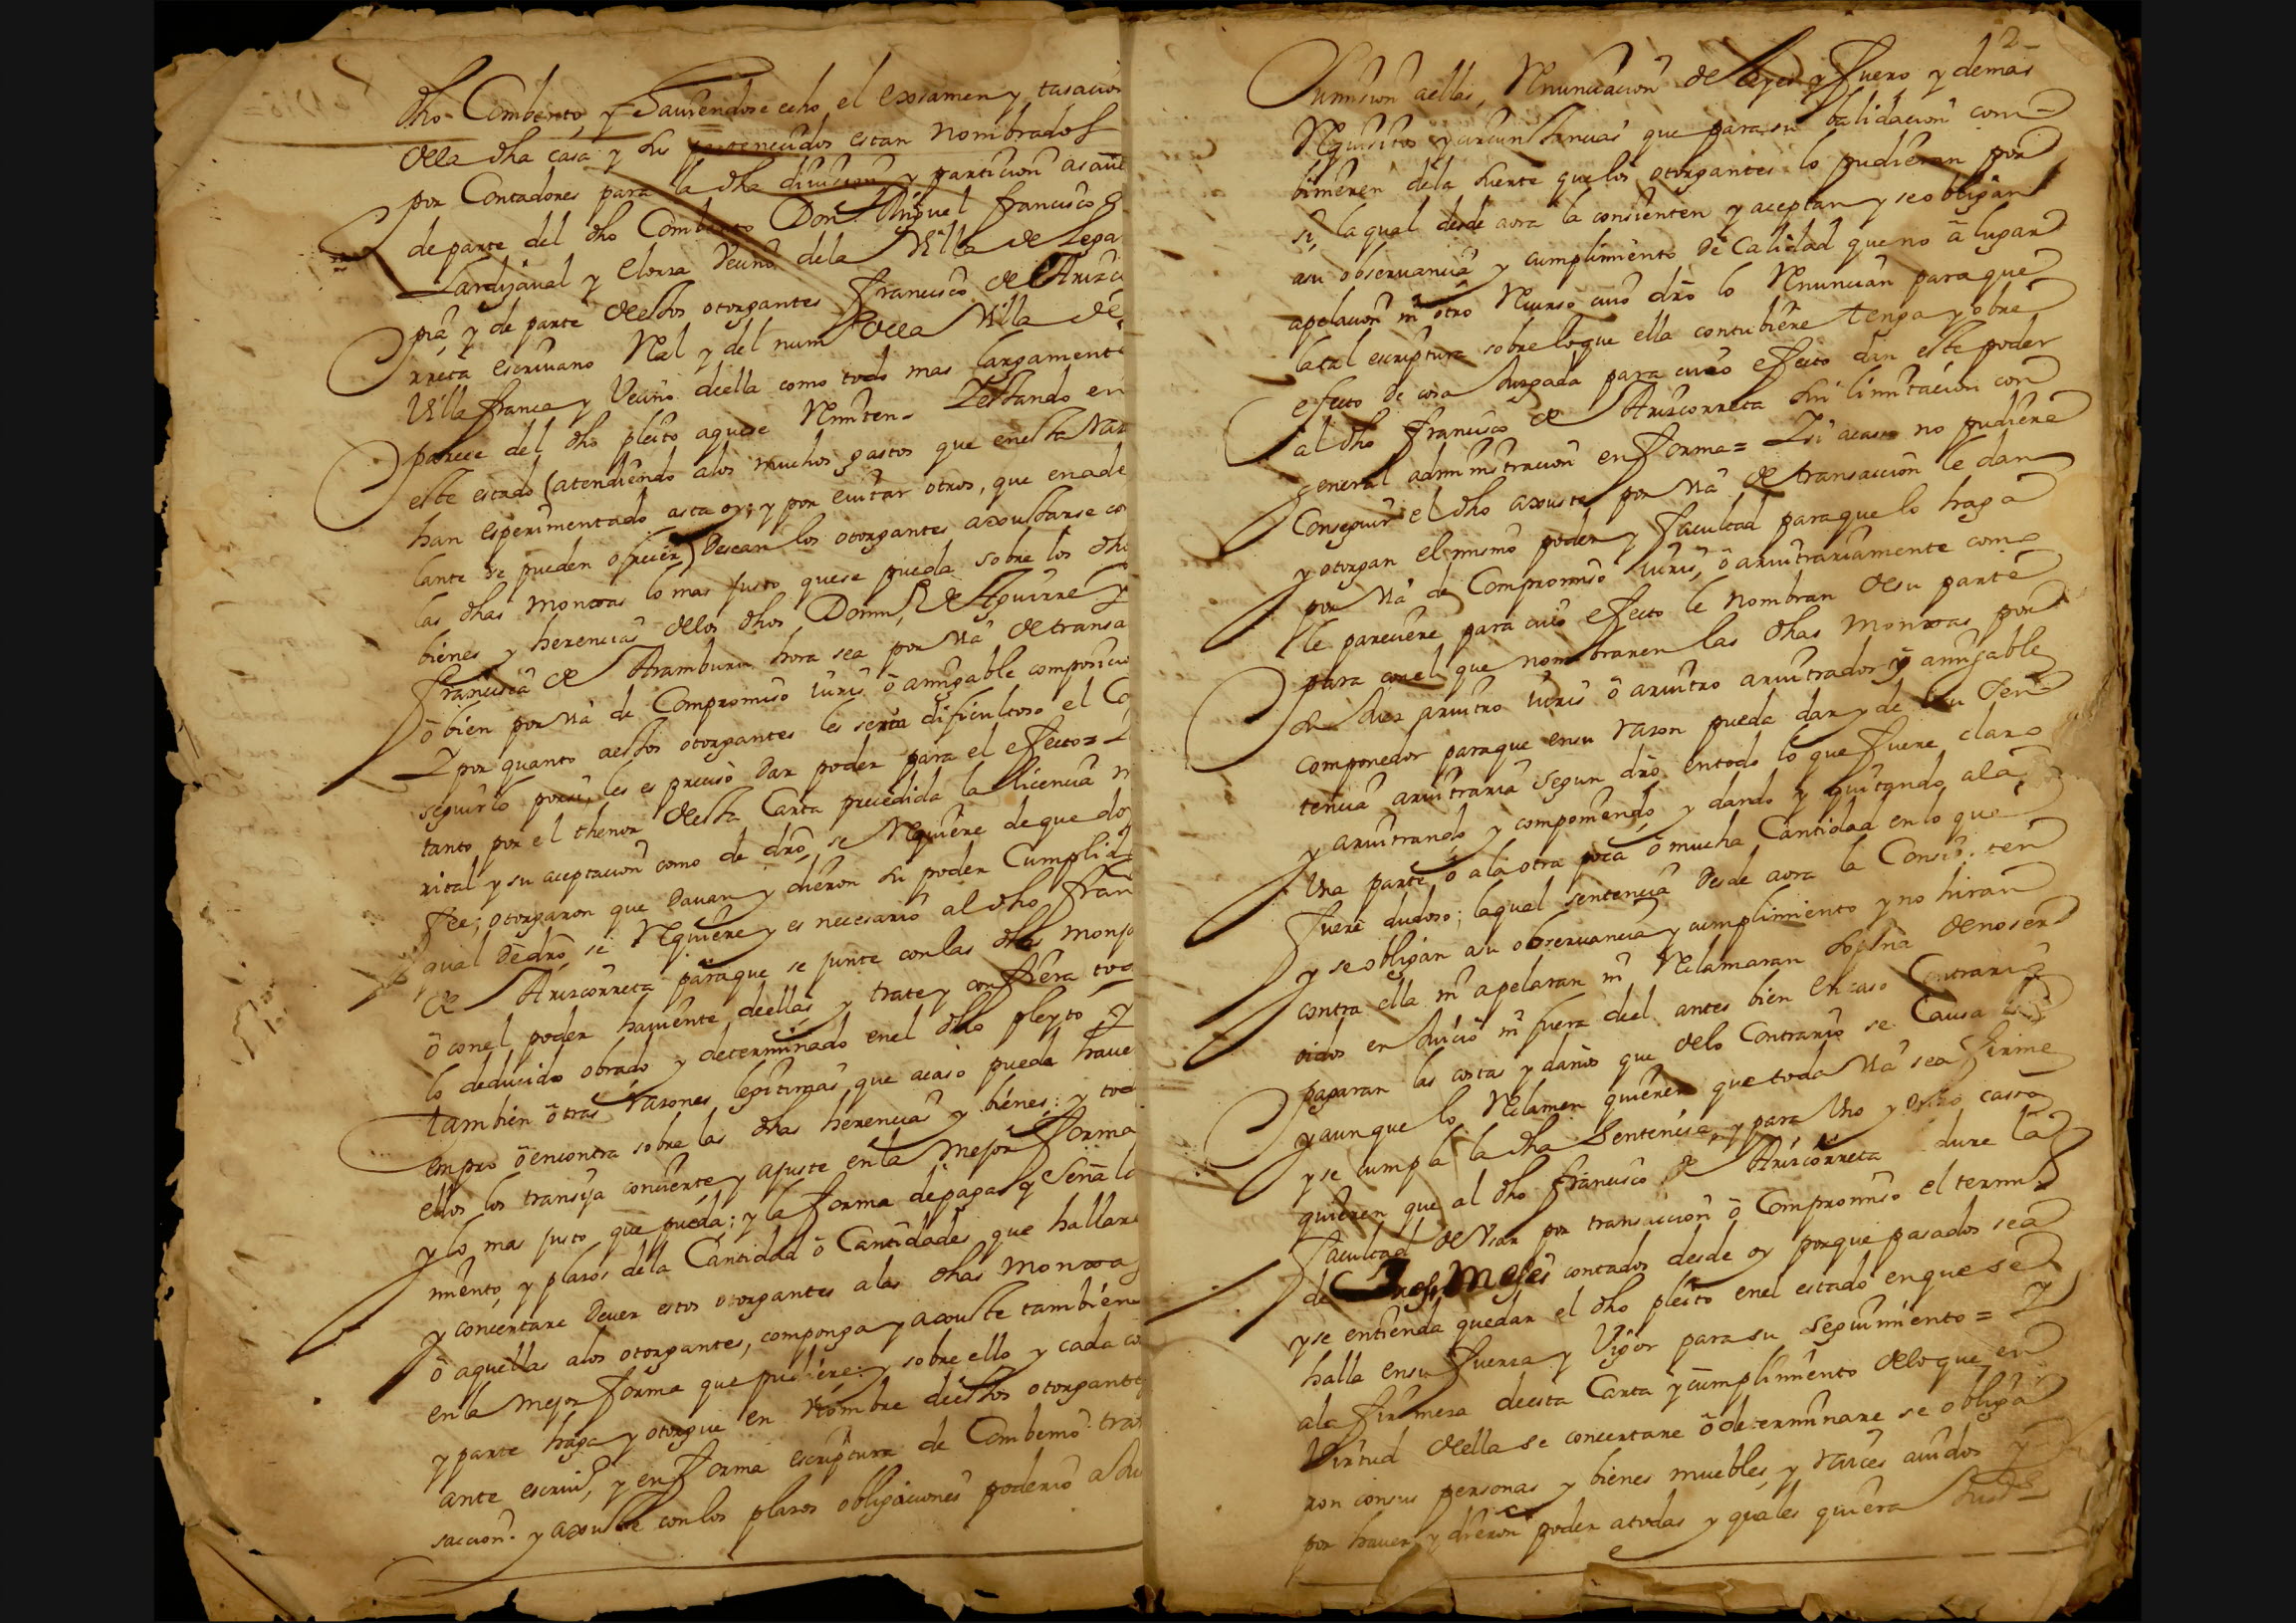 dho Combento, y Hauiendose echo el examen y tasacion
della dha casa y sus pertenecidos estan nombrados
por Contadores para la dha diuicion y particion asaue
de parte del dho Combento Don Miguel francisco
Lardizaual y Elorza Vecino dela Villa de Sega
pia y de parte destos otorgantes francisco de Arizco
rreta escriuano Real y del num.º dela Villa de
Villa franca y Vecino della como todo mas largamente
parece del dho pleito aquese Remiten. Y estando en
este estado (atendiendo alos muchos gastos que en esta Raz
han esperimentado asta oy; y por euitar otros, que en ade
lante se pueden ofrecer) Desean los otorgantes axustarse co
las dhas monxas lo mas justo que se pueda sobre los dho
bienes y herencias delos dhos Domin.º de Aguirre y
francisca de Aramburu hora sea por via de transa
ô bien por via de Compromiso iuris ô amigable composicio
Y por quanto aestos otorgantes les seria dificultoso el Co
seguirlo porsi, les es preciso Dar poder para el efecto = 
tanto por el thenor desta Carta precedida la licencia m
rital y su aceptacion como de dro se Requiere de que doy
fee; otorgaron que Dauan y dieron su poder Cumplido
qual De dro se Requiere y es necesario al dho fran
de Arizcorreta para que se junte conlas dhas monja
ô con el poder hauiente dellas y trate y confiera tod
lo deducido obrado y determinado enel dho pleyto y
tambien ôtras razones legitimas que acaso pueda haue
enpro ô encontra sobre las dhas herencias y bienes; y tod
ellos los transija concierte y ajuste en la mejor forma
y lo mas justo que pueda; y la forma de pagas y Señala
miento y plazos dela Cantidad ô Cantidades que hallare
y concertare Deuer estos otorgantes a las dhas monxas
ô aquellas alos otorgantes, componga y axuste tambien
en la mejor forma que pudiere: y sobre ello y cada co
y parte haga y otorgue en Nombre destos otorgantes
ante escriu.º, y en forma escriptura de Combenio tran
saccion. y axuste con los plazos obligaciones poderio a Ju
2
Sumision aellas, Renunciacion de leyes y fuero y demas
Requisitos y circunstancias que para su balidacion com
binieren dela suerte que los otorgantes lo pudieran por
si, la qual desde aora la consienten y aceptan y se obligan
asu obseruancia y cumplimiento De Calidad que no â lugar
apelacion ni otro Recurso cuio dro lo Renuncian para que
la tal escriptura sobre loque ella contubiere tenga y obre
efecto de cosa Juzgada para cuio efecto dan este poder
al dho francisco de Arizcorreta sin limitacion con
general administracion en forma = Y si acaso no pudiere
Conseguir el dho axuste por via de transaccion le dan
y otorgan el mismo poder y facultad paraque lo haga
por via de Compromiso iuris, ô aruitrariamente como
le pareciere para cuio efecto le nombran desu parte
para con el que nombraren las dhas monxas por
su Juez aruitro iuris ô aruitro aruitrador y amigable
componedor paraque ensu razon pueda dar y de su Sen
tencia aruitraria segun dro entodo lo que fuere claro
y aruitrando, y componiendo, y dando y quitando ala
Una parte ô ala otra poca ô mucha Cantidad enlo que
fuere dudoso; la qual sentencia Desde aora la Consienten
y se obligan asu obseruancia y cumplimiento y no hiran
contra ella ni apelaran ni Reclamaran sopena de no ser
oidos en Juicio ni fuera del antes bien en caso Contrario
pagaran las costas y daños que delo Contrario se Causa
y aunque lo Reclamen quieren que toda via sea firme
y se cumpla la dha Sentencia, y para Uno y otro casso
quieren que al dho francisco de Arizcorreta dure la
facultad de Usar por transaccion ô Compromiso el termi.º
de Tres Meses contados desde oy porque pasados sea
y se entienda quedar el dho pleito enel estado enque se
halla ensu fuerza y Vigor para su seguimiento = Y
ala firmeza desta Carta y cumplimiento delo que en
Virtud della se concertare ô determinare se obliga
ron consus personas y bienes muebles, y raices auidos y
por hauer y dieron poder a todas y quales quiera Justas